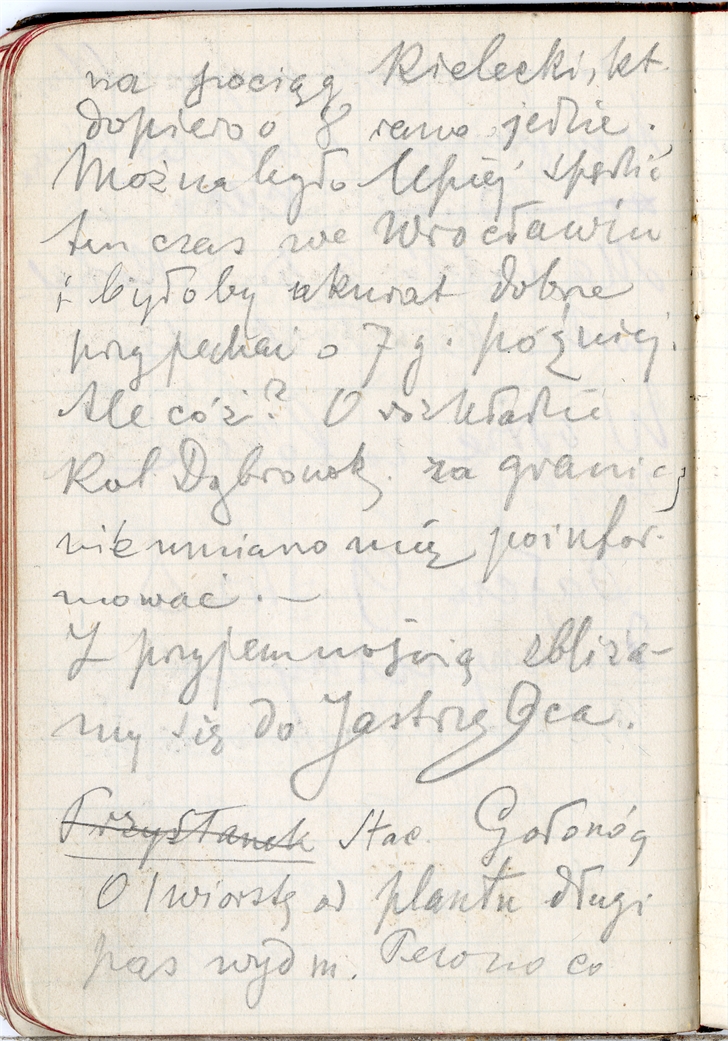 na pociąg Kielecki, kt.
dopiero o 8 rano jedzie.
Można było lepiej spędzić
ten czas we Wrocławiu
i byłoby akurat dobrze
przyjechać o 7 g. później.
Ale cóż? O rozkładzie
Kol. Dąbrowsk. za granicą
nie umiano mię poinfor-
mować. —
Z przyjemnością zbliża-
my się do Jastrzębca.
Przystanek Stac. Gołonóg
O 1 wiorstę od plantu długi
pas wydm.